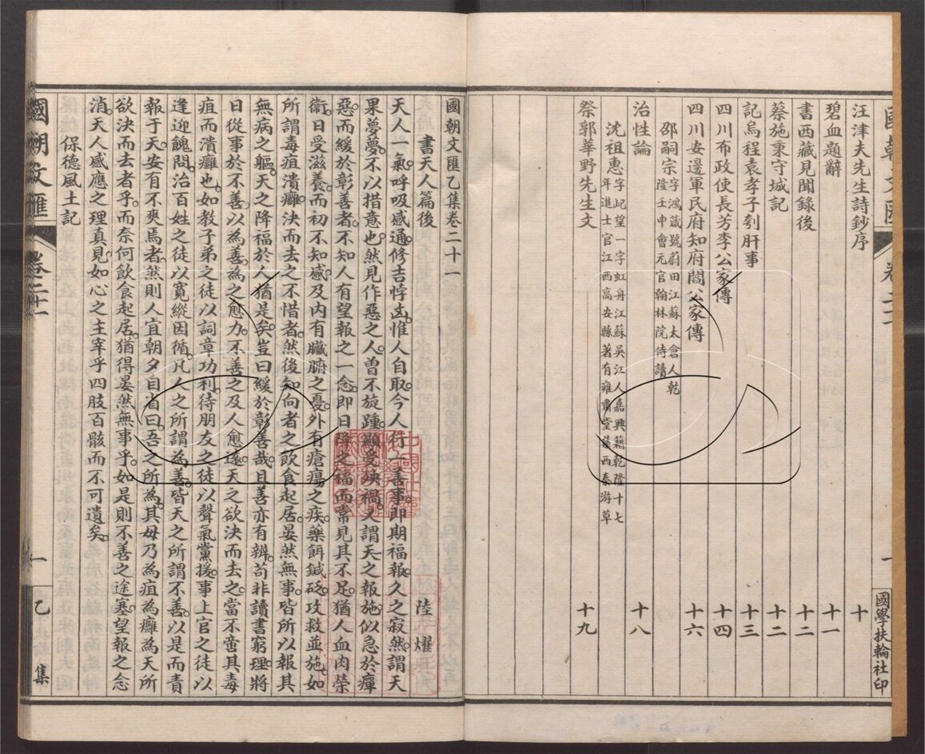 汪津夫先生詩鈔序 十
碧血題辭 十一
書西藏見聞錄後 十二
蔡施秉守城記 十二
記烏程袁孝子刲肝事 十三
四川布政使長芳李公家傳 十四
四川安邊軍民府知府閻公家傳 十六
邵嗣宗 字鴻葴號蔚田江蘇太倉人乾
隆壬申會元官翰林院侍讀
治性論 十八
沈祖惠 字屺望一字虹舟江蘇吳江人嘉興籍乾隆十七
年進士官江西高安縣著有雍肅堂集西秦游草
祭郭華野先生文 十九
國學扶輪社印
國朝文匯 卷二十一 一 乙集
國朝文匯乙集卷二十一
書天人篇後 陸燿
天人一氣呼吸感通修吉悖凶惟人自取今人行一善事即期福報久之寂然謂天
果夢夢不以措意也然見作惡之人曾不旋踵顯受殃禍人謂天之報施似急於癉
惡而緩於彰善者不知人有望報之一念即日降之福而常見其不足猶人血肉榮
衛日受滋養而初不知感及內有臟腑之憂外有瘡瘍之疾藥餌鍼砭攻救並施如
所謂毒疽潰癰決而去之不惜者然後知向者之飲食起居晏然無事皆所以報其
無病之軀天之降福於人猶是矣豈曰緩於彰善哉且善亦有辨苟非讀書窮理將
日從事於不善以為善為之愈力不善之及人愈遠天之欲決而去之當不啻其毒
疽而潰癰也如教子弟之徒以詞章功利待朋友之徒以聲氣黨援事上官之徒以
逢迎餽問治百姓之徒以寬縱因循凡人之所謂為善皆天之所謂不善以是而責
報于天安有不爽焉者然則人宜朝夕自省曰吾之所為其毋乃為疽為癰為天所
欲決而去者乎而奈何飲食起居猶得晏然無事乎如是則不善之途塞望報之念
消天人感應之理真見如心之主宰乎四肢百骸而不可遺矣
保德風土記